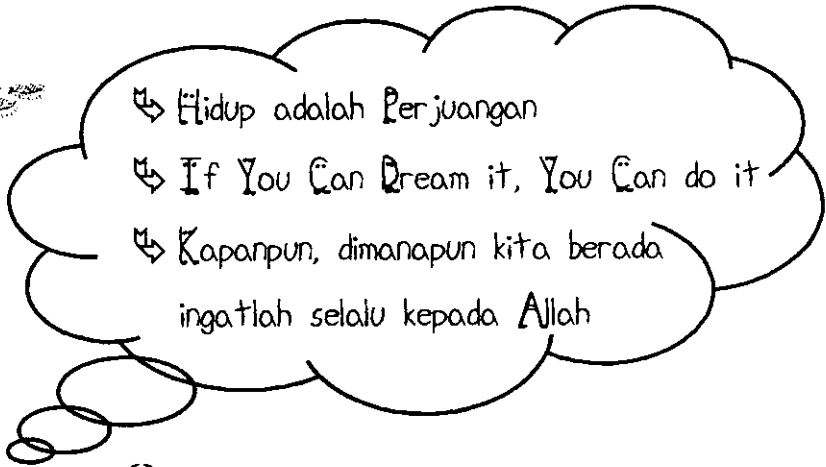 Hidup adalah Perjuangan
If You Can Dream it, You Can do it
Kapanpun, dimanapun kita berada
ingatlah selalu kepada Allah